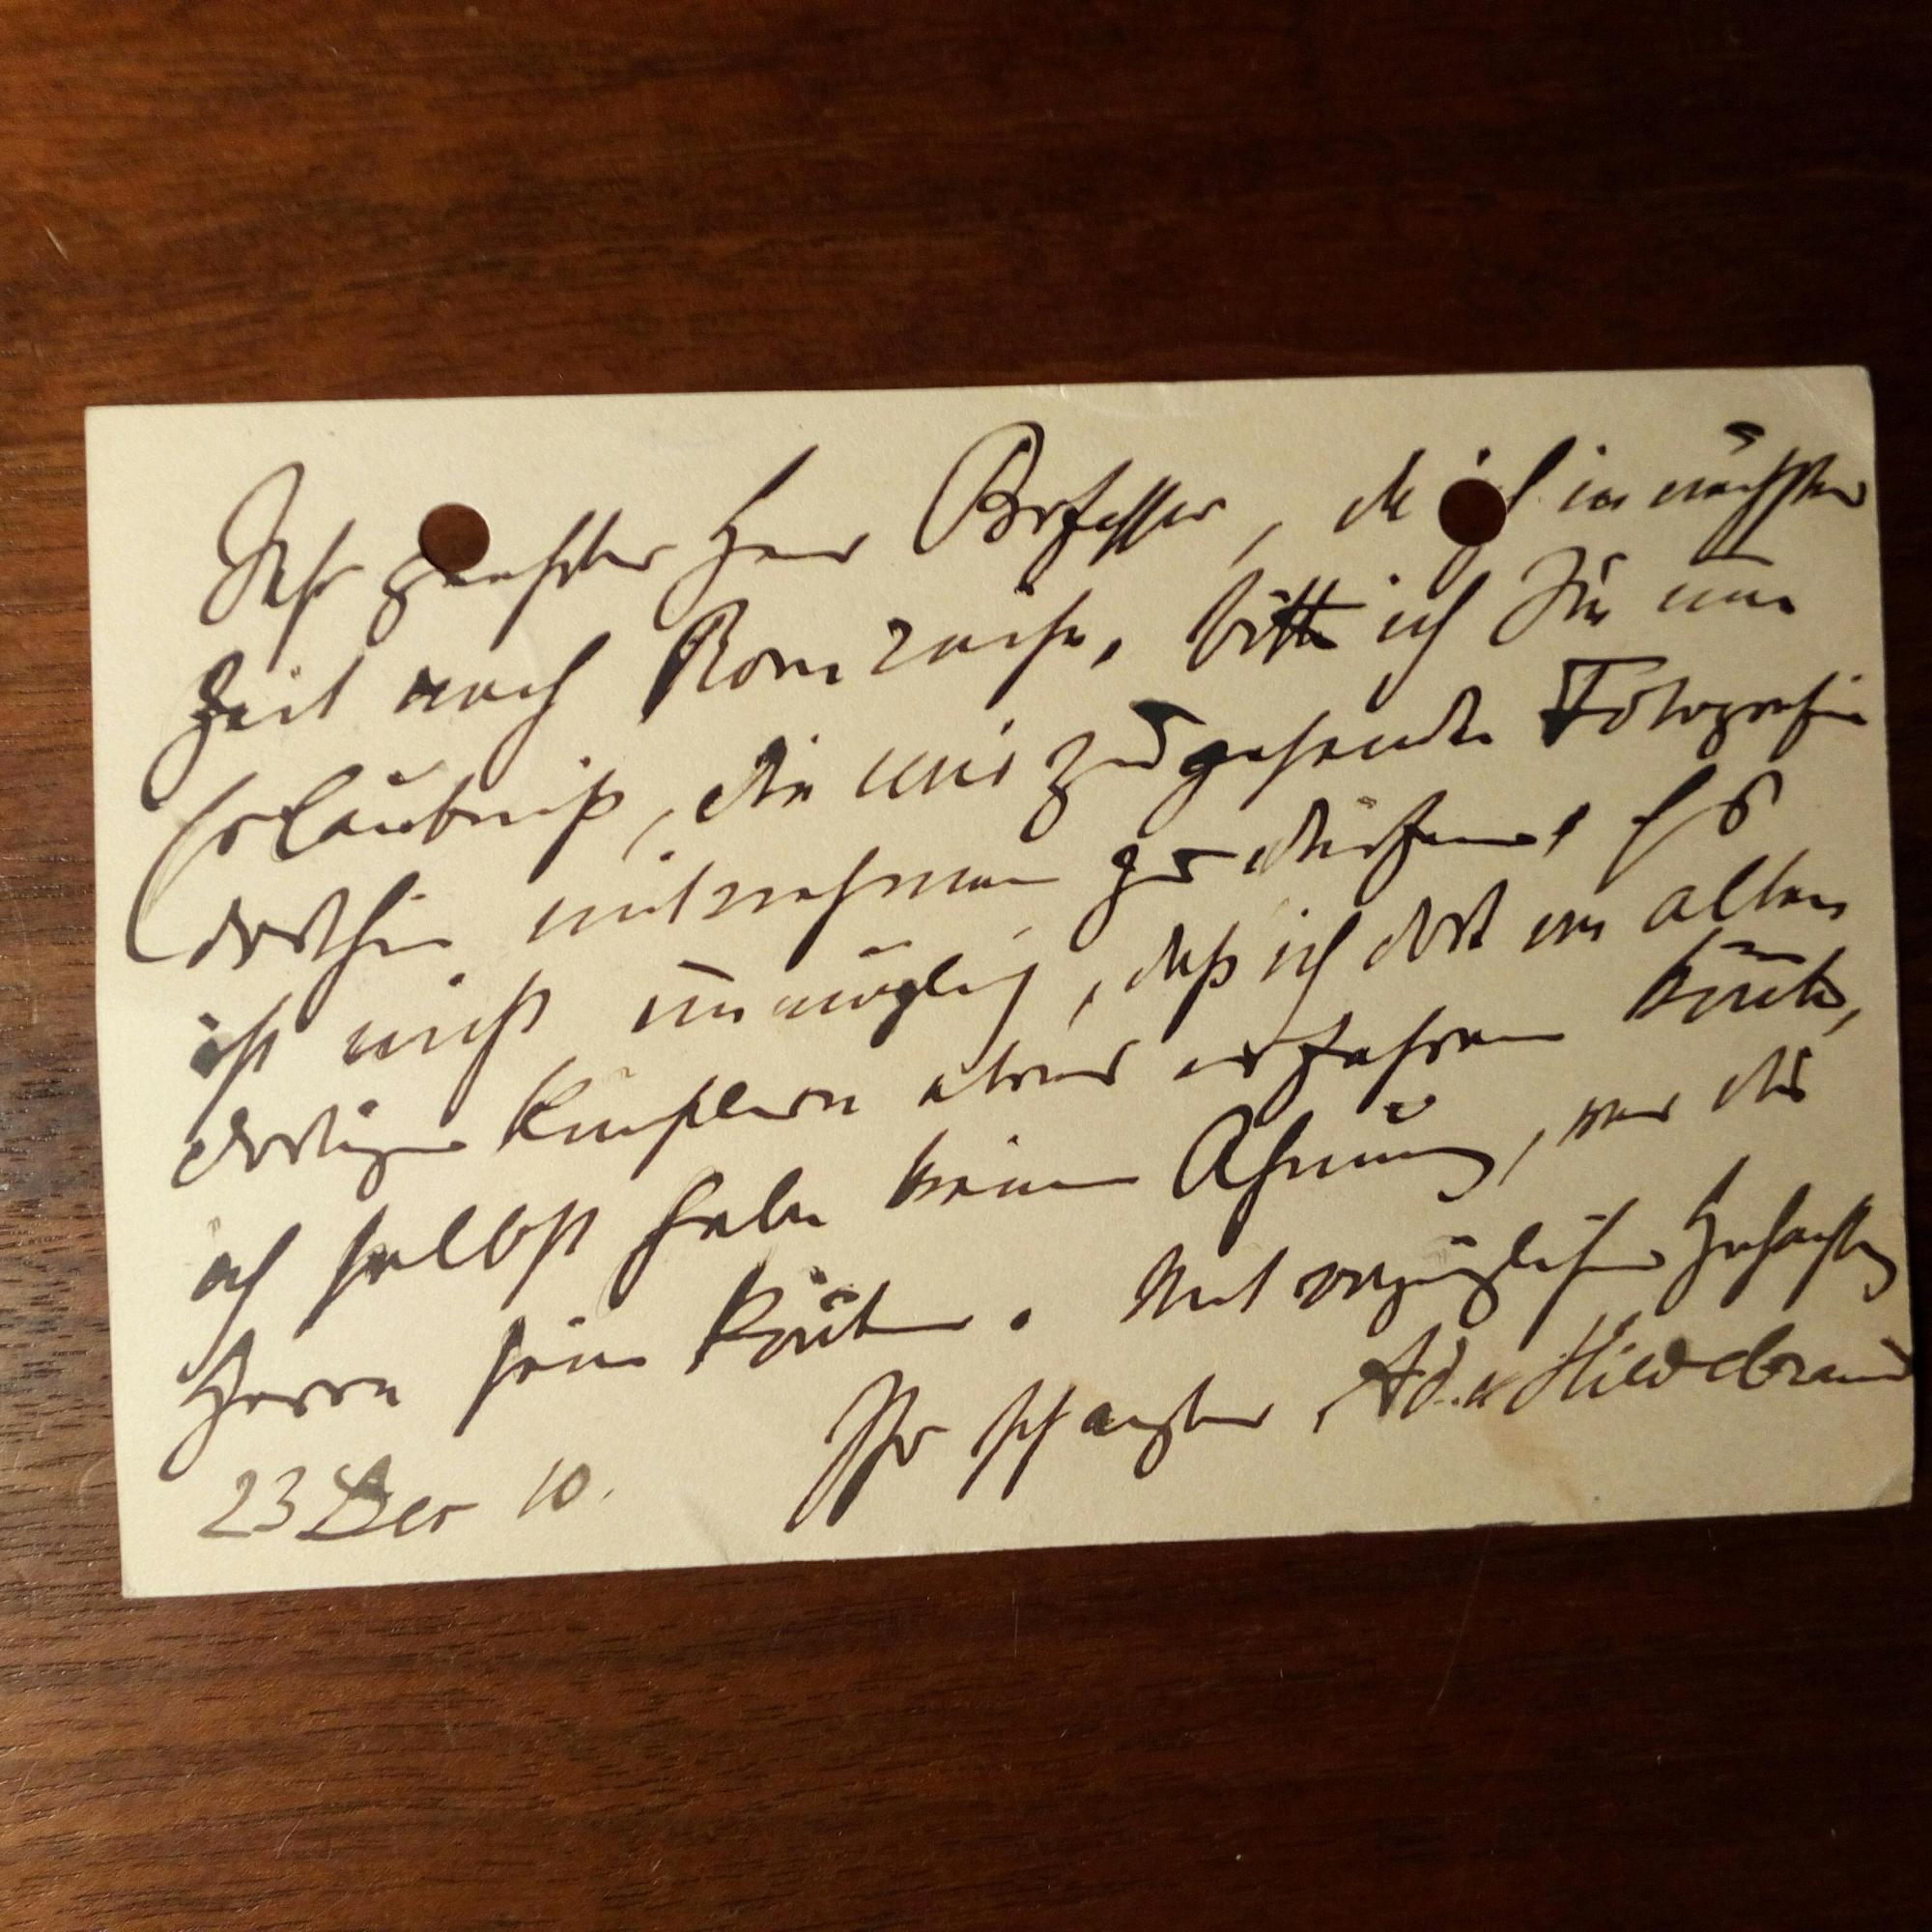 Sehr geehrter Herr Professor, da ich in nächster
Zeit nach Rom reise, bitte ich Sie um
Erlaubniß, die mir zugesandte Fotografie
dorthin mitnehmen zu dürfen. Es
ist nicht unmöglich, daß ich dort von alten
dortigen Künstlern etwas erfahren könte,
ich selbst habe keine Ahnung, wer die
Herrn sein könten. Mit vorzüglicher Hochachtung
Ihr Ad. v Hildebrand
23 Dec 10.